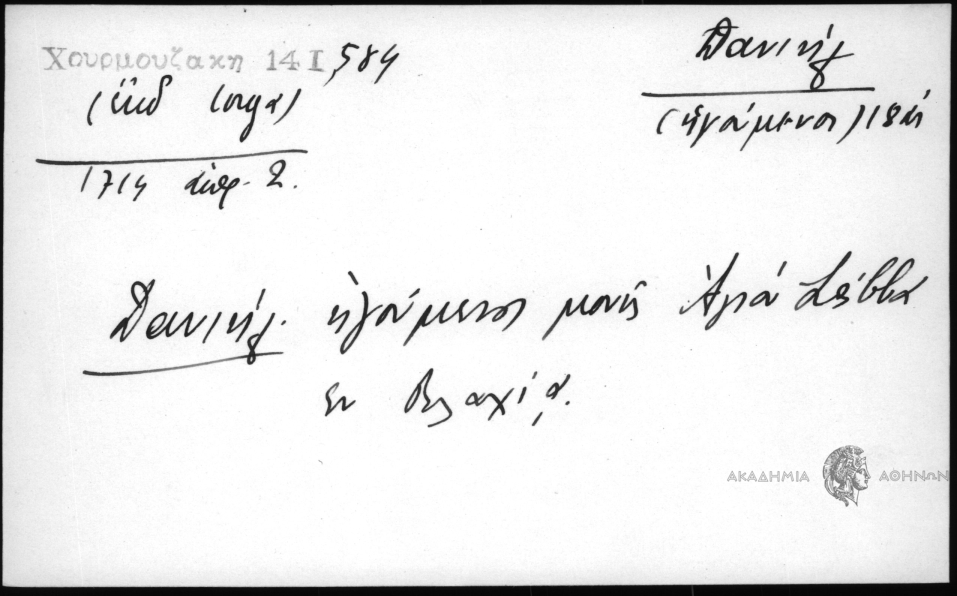 Χουρμουζακη 14 I, 584
(ἔκδ Ιοργα)
1714 ἀπρ. 2.
Δανιήλ
(ἡγούμενος) 18ου
Δανιήλ ἡγούμενος μονῆς Ἁγίου Σάββα
ἐν Βλαχίᾳ.
ΑΚΑΔΗΜΙΑ ΑΘΗΝΩΝ